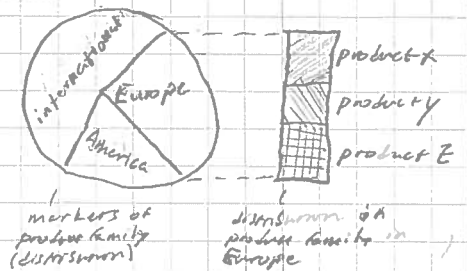 international
Europe
America
product x
product y
product Z
markers of
product family
(distribution)
of
product family in
Europe